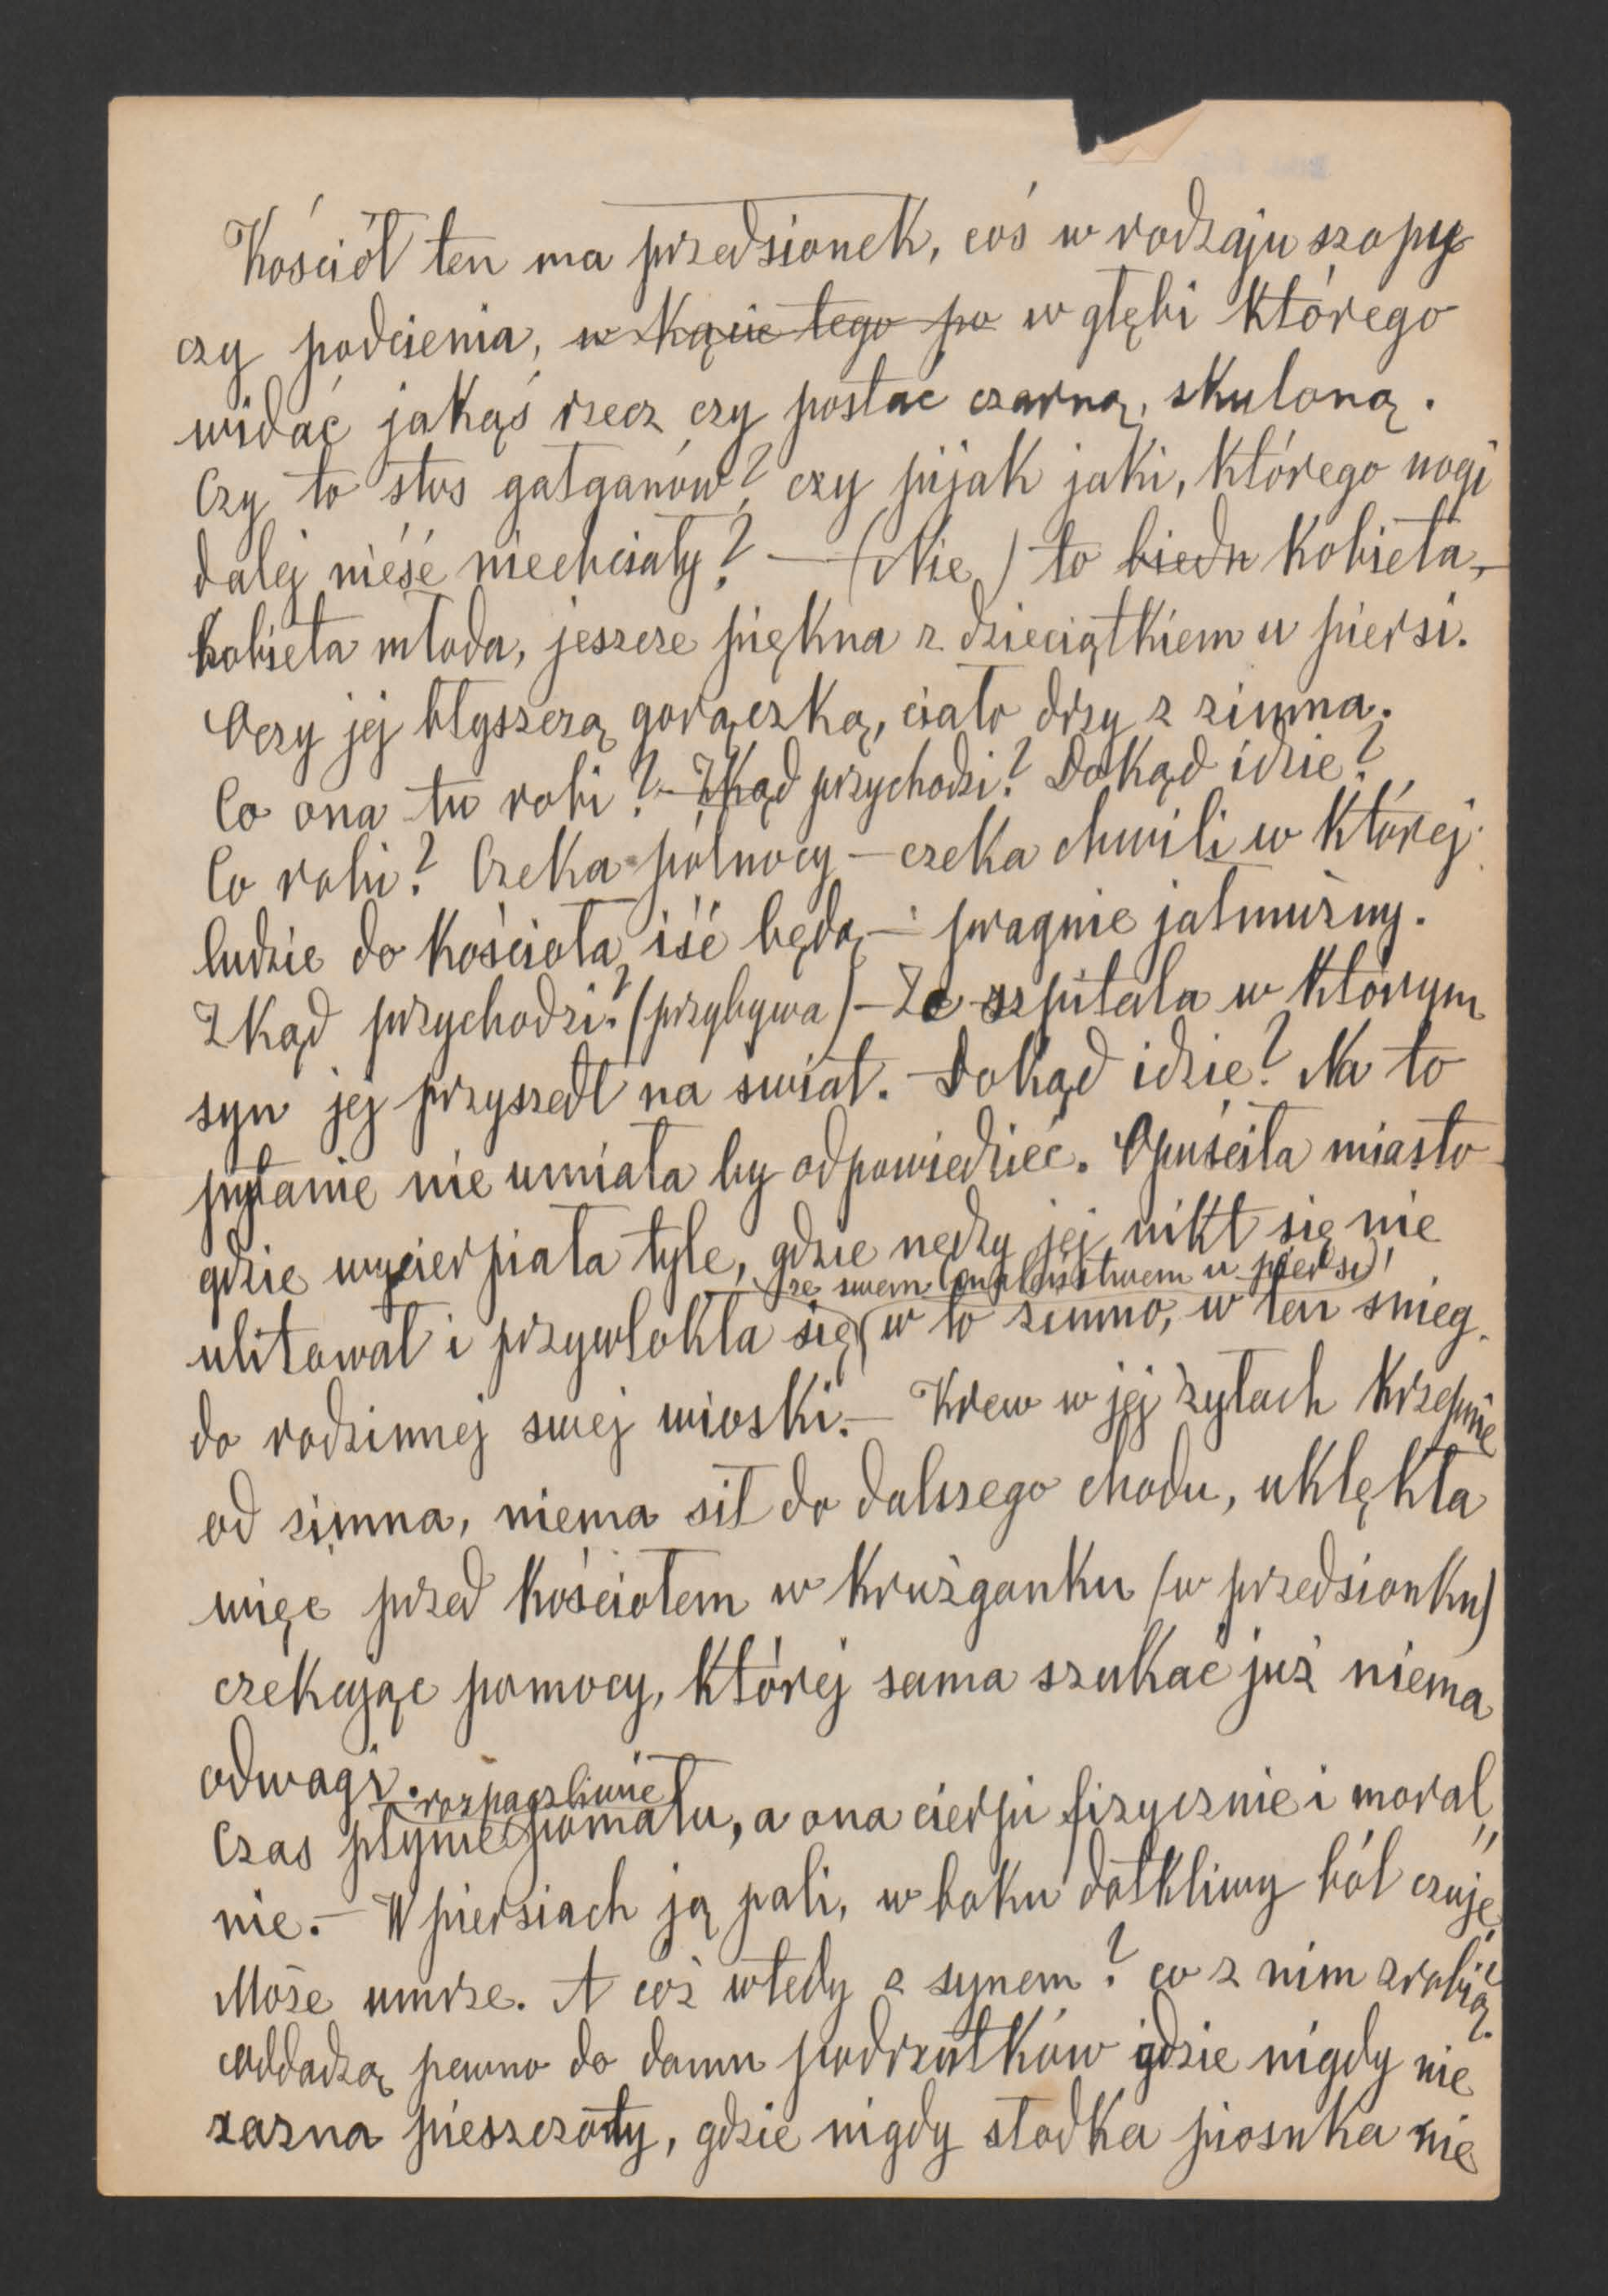 Kościół ten ma przedsionek, coś w rodzaju szopy
czy podcienia, w kącie tego po w głębi którego
widać jakąś rzecz czy postać czarną, skuloną.
Czy to stos gałganów? czy pijak jaki, którego nogi
dalej nieść niechciały? — (Nie) to biedn kobieta,
kobieta młoda, jeszcze piękna z dzieciątkiem u piersi.
Oczy jej błyszczą gorączką, ciało drży z zimna.
Co ona tu robi? — Zkąd przychodzi? Dokąd idzie?
Co robi? Czeka północy — czeka chwili w której
ludzie do kościoła iść będą — pragnie jałmużny.
Zkąd przychodzi? (przybywa) — Ze szpitala w którym
syn jej przyszedł na swiat. — Dokąd idzie? Na to
pytanie nie umiała by odpowiedzieć. Opuściła miasto
gdzie wycierpiała tyle, gdzie nędzy jej nikt się nie
ze swem u piersi
ulitował i przywlokła się w to zimno, w ten snieg
do rodzinnej swej wioski. — Krew w jej żyłach krzepnie
od zimna, niema sił do dalszego chodu, uklękła
więc przed kościołem w krużganku (w przedsionku)
czekając pomocy, której sama szukać już niema
odwagi.
rozpaczliwie
Czas płynie pomału, a ona cierpi fizycznie i moral„
nie. — W piersiach ją pali, w boku dotkliwy ból czuje
Może umrze. A coż wtedy z synem? co z nim zrobią?
oddadzą pewno do domu podrzutków gdzie nigdy nie
zazna pieszczoty, gdzie nigdy słodka piosnka nie